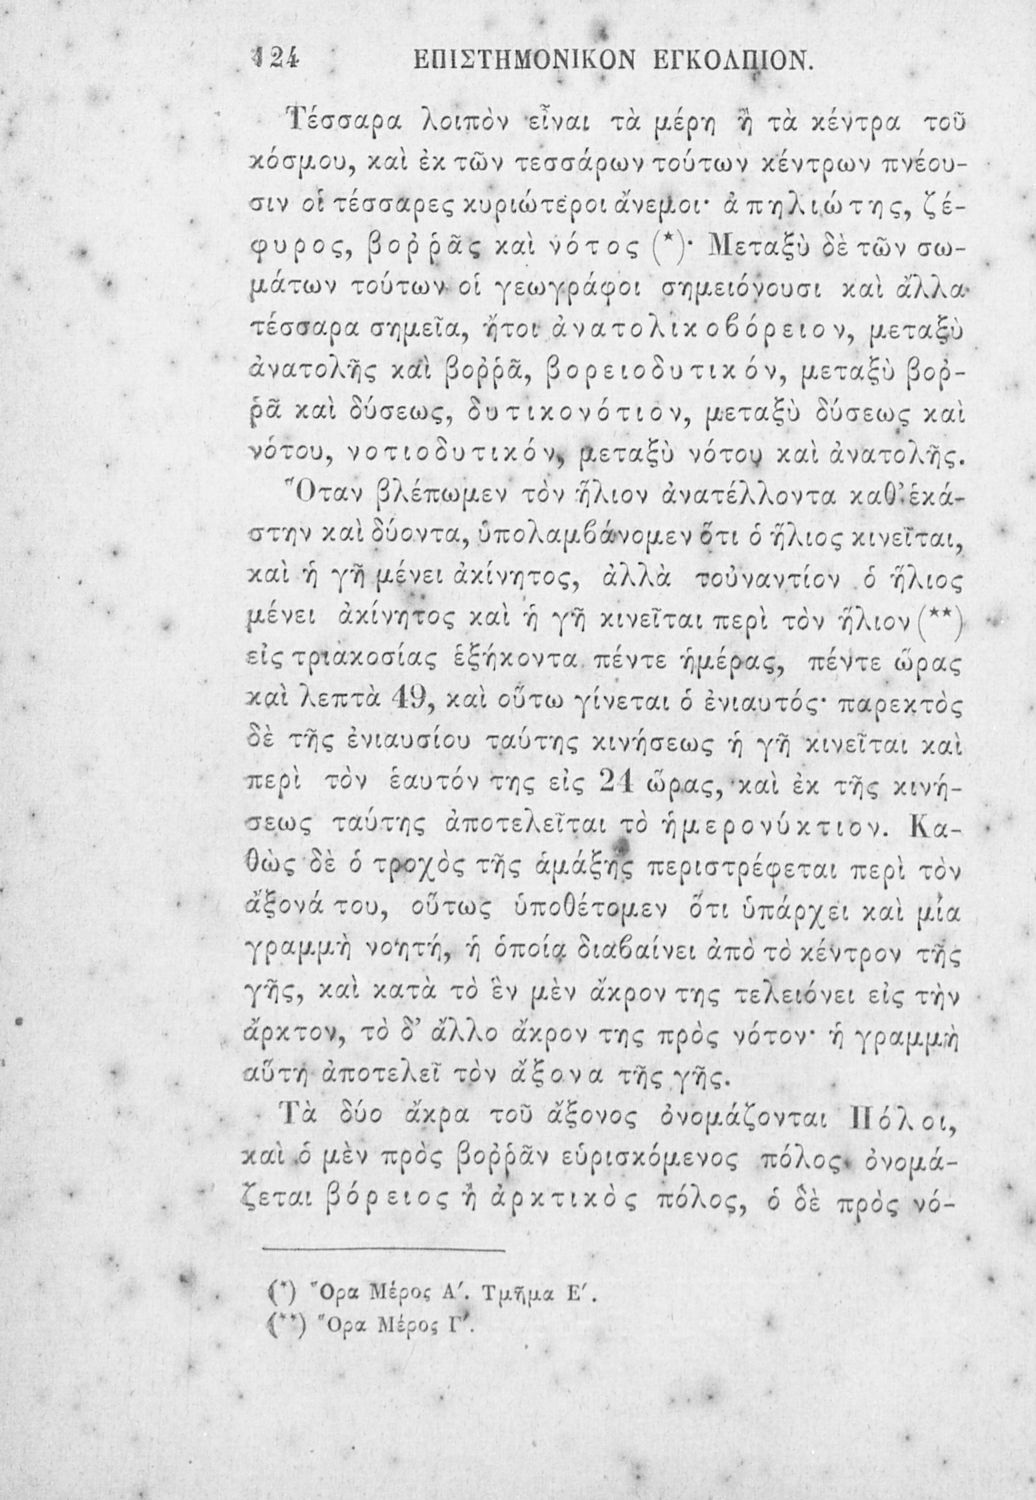 124 ΕΠΙΣΤΗΜΟΝΙΚΟΝ ΕΓΚΟΛΠΙΟΝ.
Τέσσαρα λοιπὸν εἶναι τὰ μέρη ἢ τὰ κέντρα τοῦ
κόσμου, καὶ ἐκ τῶν τεσσάρων τούτων κέντρων πνέου-
σιν οἱ τέσσαρες κυριώτεροι ἄνεμοι· ἀπηλιώτης, ζέ-
φυρος, βοῤῥᾶς καὶ νότος (*)· Μεταξὺ δὲ τῶν σω-
μάτων τούτων οἱ γεωγράφοι σημειόνουσι καὶ ἄλλα
τέσσαρα σημεῖα, ἤτοι ἀνατολικοβόρειον, μεταξὺ
ἀνατολῆς καὶ βοῤῥᾶ, βορειοδυτικόν, μεταξὺ βοῤ-
ῥᾶ καὶ δύσεως, δυτικονότιον, μεταξὺ δύσεως καὶ
νότου, νοτιοδυτικόν, μεταξὺ νότου καὶ ἀνατολῆς.
Ὅταν βλέπωμεν τὸν ἥλιον ἀνατέλλοντα καθ’ ἑκά-
στην καὶ δύοντα, ὑπολαμβάνομεν ὅτι ὁ ἥλιος κινεῖται,
καὶ ἡ γῆ μένει ἀκίνητος, ἀλλὰ τοὐναντίον ὁ ἥλιος
μένει ἀκίνητος καὶ ἡ γῆ κινεῖται περὶ τὸν ἥλιον (**)
εἰς τριακοσίας ἑξήκοντα πέντε ἡμέρας, πέντε ὥρας
καὶ λεπτὰ 49, καὶ οὕτω γίνεται ὁ ἐνιαυτός· παρεκτὸς
δὲ τῆς ἐνιαυσίου ταύτης κινήσεως ἡ γῆ κινεῖται καὶ
περὶ τὸν ἑαυτόν της εἰς 24 ὥρας, καὶ ἐκ τῆς κινή-
σεως ταύτης ἀποτελεῖται τὸ ἡμερονύκτιον. Κα-
θὼς δὲ ὁ τροχὸς τῆς ἁμάξης περιστρέφεται περὶ τὸν
ἄξονά του, οὕτως ὑποθέτομεν ὅτι ὑπάρχει καὶ μία
γραμμὴ νοητή, ἡ ὁποία διαβαίνει ἀπὸ τὸ κέντρον τῆς
γῆς, καὶ κατὰ τὸ ἓν μὲν ἄκρον της τελειόνει εἰς τὴν
ἄρκτον, τὸ δ’ ἄλλο ἄκρον της πρὸς νότον· ἡ γραμμὴ
αὕτη ἀποτελεῖ τὸν ἄξονα τῆς γῆς.
Τὰ δύο ἄκρα τοῦ ἄξονος ὀνομάζονται Πόλοι,
καὶ ὁ μὲν πρὸς βοῤῥᾶν εὑρισκόμενος πόλος ὀνομά-
ζεται βόρειος ἢ ἀρκτικὸς πόλος, ὁ δὲ πρὸς νό-
(*) Ὅρα Μέρος Α΄. Τμῆμα Ε΄.
(**) Ὅρα Μέρος Γ΄.